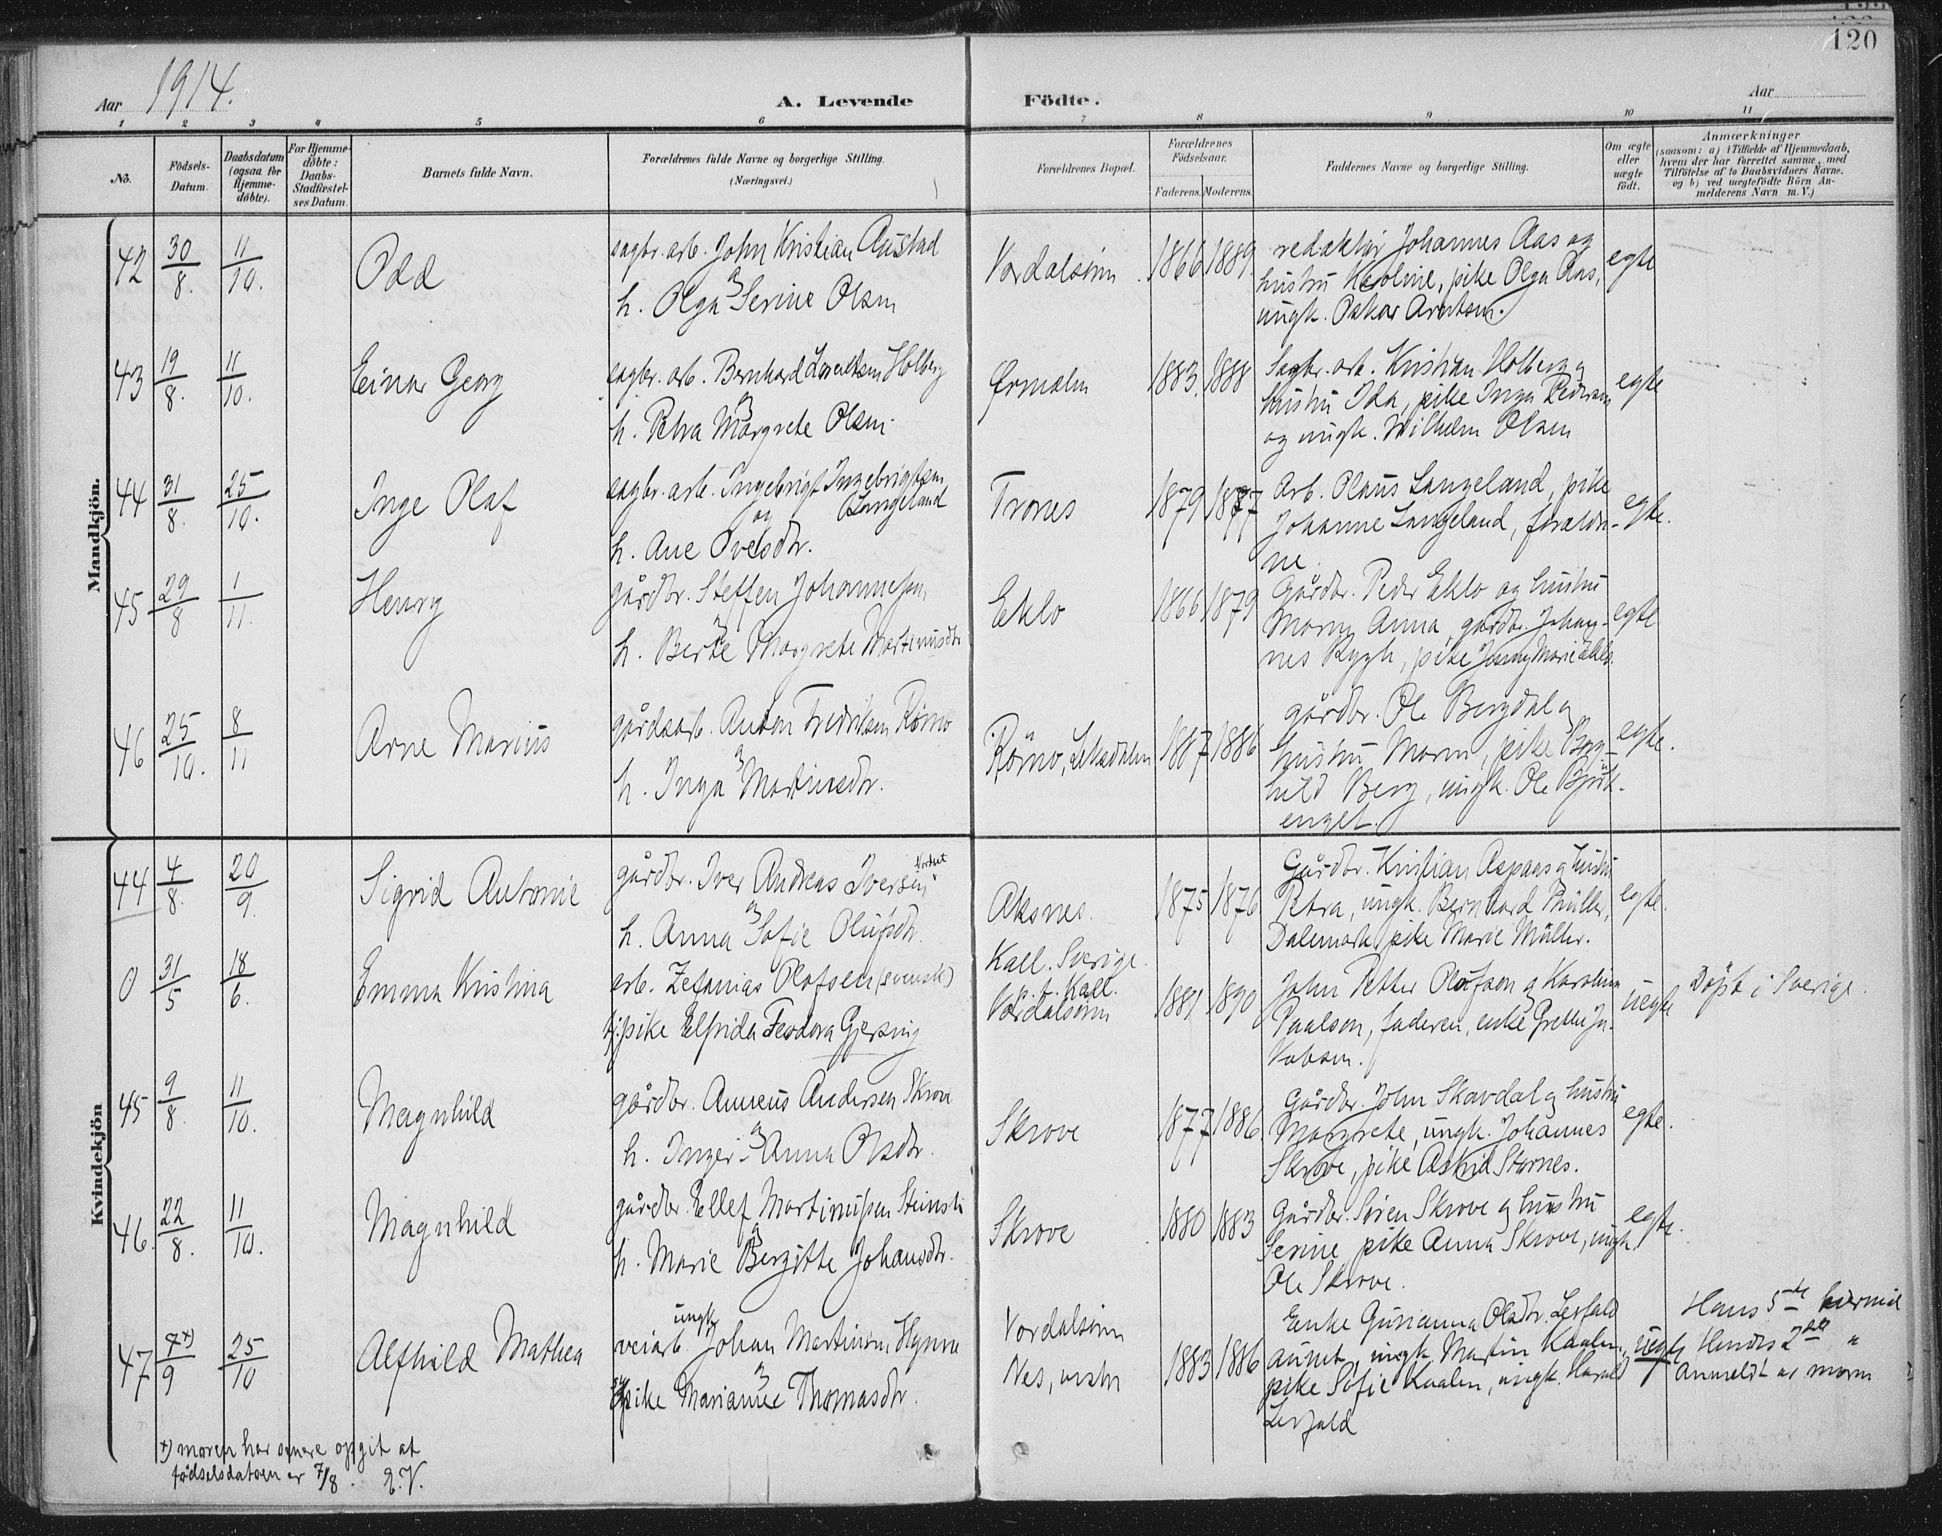 120
Aar 1914.
A. Levende
Födte.
Aar
1 2 3 4 5 6 7 8 9 10 11
No.
Födsels-Datum.
Daabsdatum (ogsaa for Hjemme-döbte).
For Hjemme-döbte: Daabs-Stadfæstel-ses Datum.
Barnets fulde Navn.
Forældrenes fulde Navne og borgerlige Stilling.
(Næringsvei.)
Forældrenes Bopæl.
Forældrenes Födselsaar.
Faderens. Moderens.
Faddernes Navne og borgerlige Stilling.
Om ægte eller uægte födt.
Anmærkninger
(saasom: a) i Tilfælde af Hjemmedaab,
hvem der har forrettet samme, med
Tilföielse af to Daabsvidners Navne,
og b) ved uægtefödte Börn An-
melderens Navn m. V.)
Mandkjön.
42 30/8. 11/10. Odd
sagbr. arb. John Kristian Austad
og
h. Olga Serine Olsen
Verdalsøren 1866 1889.
redaktør Johannes Aas og
hustru Karoline, pike Olga Aas,
ungk. Oskar Arntsen.
egte
43 19/8. 11/10. Einar Georg
sagbr. arb. Bernhard Lorentsen Holberg
og
h. Petra Margrete Olsen.
Ørmelen 1883. 1888
Sagbr. arb. Kristian Holberg og
hustru Ida, pike Inga Pedersen
og ungk. Wilhelm Olsen
egte
44 31/8. 25/10. Inge Olaf
sagbr. arb. Ingebrigt Ingebrigtsen
og Langeland
h. Ane Ovesdtr.
Trones 1879 1877
Arb. Olaus Langeland, pike
Johanne Langeland, foreldre-
ne.
egte.
45 29/8 1/11. Henry
gårdbr. Steffen Johannessen,
h. Berte Margrete Martinusdtr
Eklo 1866 1879
Gårdbr. Peder Eklo og hustru
Maren Anna, gårdbr. Johan-
nes Rygh, pike Jenny Marie Eklo.
egte
46 25/10. 8/11 Arne Marius
gårdsarb. Anton Fredriksen Rømo
og
h. Inga Martinsdtr.
Rømo, Leksdalen 1887 1886
gårdbr. Ole Bergdal og
hustru Maren, pike Borg-
hild Berg, ungk. Ole Bjørk-
enget.
egte.
Kvindekjön
44 4/8. 20/9. Sigrid Antonie
gårdbr. Iver Andreas Iversen
og
h. Anna Sofie Olufsdtr.
Aksnes. 1875 1876
Gårdbr. Kristian Aspaas og hustru
Petra, ungk. Bernhard Müller,
Dalemark, pike Marie Müller.
egte.
0 31/5 18/6. Emma Kristina
arb. Zefanias Olofsen (svensk)
pike Elfrida Feodora Gjersing
Kall. Sverige.
p. t. Kall.
Verdalsøren 1881 1890
John Petter Olofson og Karolina
Paulson, faderen, enke Grethe Ja-
kobsen.
uegte
Døpt i Sverige.
45 9/8. 11/10. Magnhild
gårdbr. Anneus Andersen Skrove
og
h. Inger-Anna Olsdtr.
Skrove 1877 1886
Gårdbr. John Skavdal og hustru
Margrete, ungk. Johannes
Skrove, pike Astrid Stornes.
egte.
46. 22/8. 11/10. Magnhild
gårdbr. Ellef Martinussen
og
h. Marie Bergitte Johansdtr.
Skrove 1880 1883
Gårdbr. Søren Skrove og hustru
Serine, pike Anna Skrove, ungk.
Ole Skrove.
egte.
47 7 x)/9 25/10 Alfhild Mathea
ungk.
veiarb. Johan Martinsen Hynne
og
pike Marianne Thomasdtr.
Verdalsøren
Nes, vestre 1883 1886
Enke Gurianna Olsdtr. Lerfald
aunet, ungk. Martin Kaalen,
pike Sofie Kaalen, ungk. Harald
Lerfald
uegte
Hans 5te barn
Hendes 2det "
Anmeldt av moren
x) moren har senere opgit at
fødselsdatoen er 7/8. E.V.